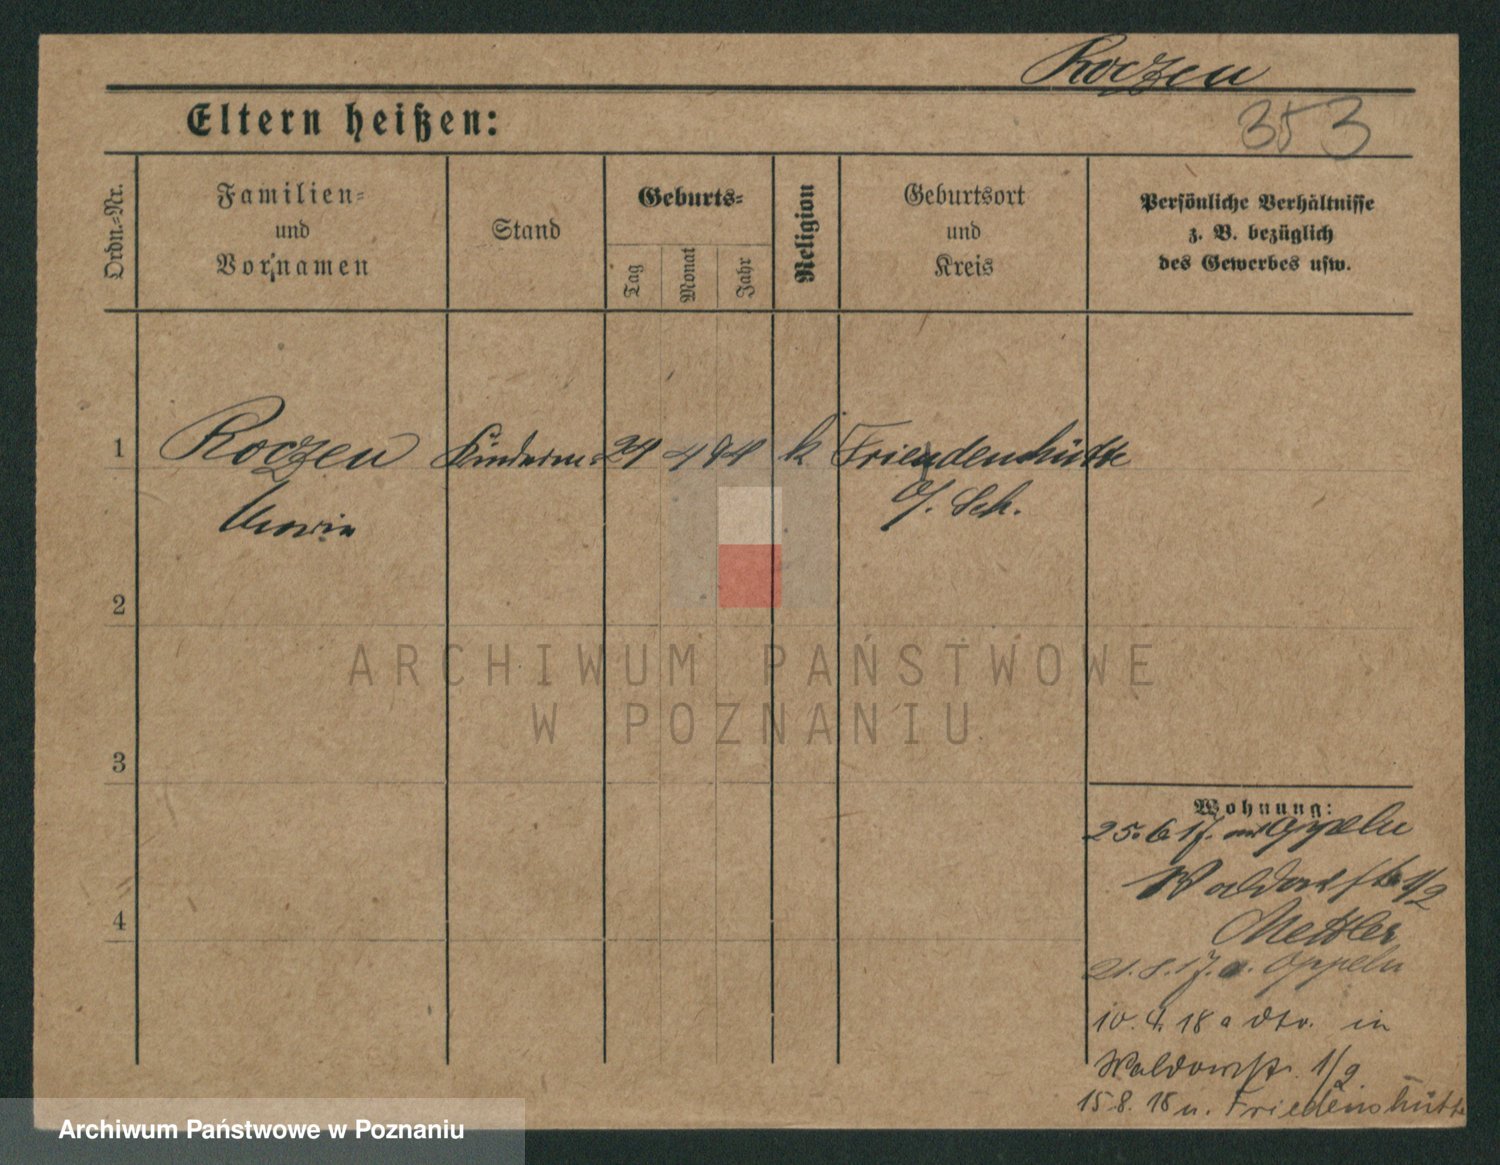 Roczen
353
Eltern heißen:
Ordn.=Nr.
Familien=
und
Vornamen
Stand
Geburts=
Tag
Monat
Jahr
Religion
Geburtsort
und
Kreis
Persönliche Verhältnisse
z. B. bezüglich
des Gewerbes usw.
1
Roczen
24 4 94
k
Friedenshütte
O/. Sch.
2
3
4
Wohnung:
25. 6 17. Oppeln
1/2
Mettler
21. 8. 17. Oppeln
10. 4. 18 a dto. in
Waldowstr. 1/2
15. 8. 18 n. Friedenshütte
ARCHIWUM PAŃSTWOWE
W POZNANIU
Archiwum Państwowe w Poznaniu